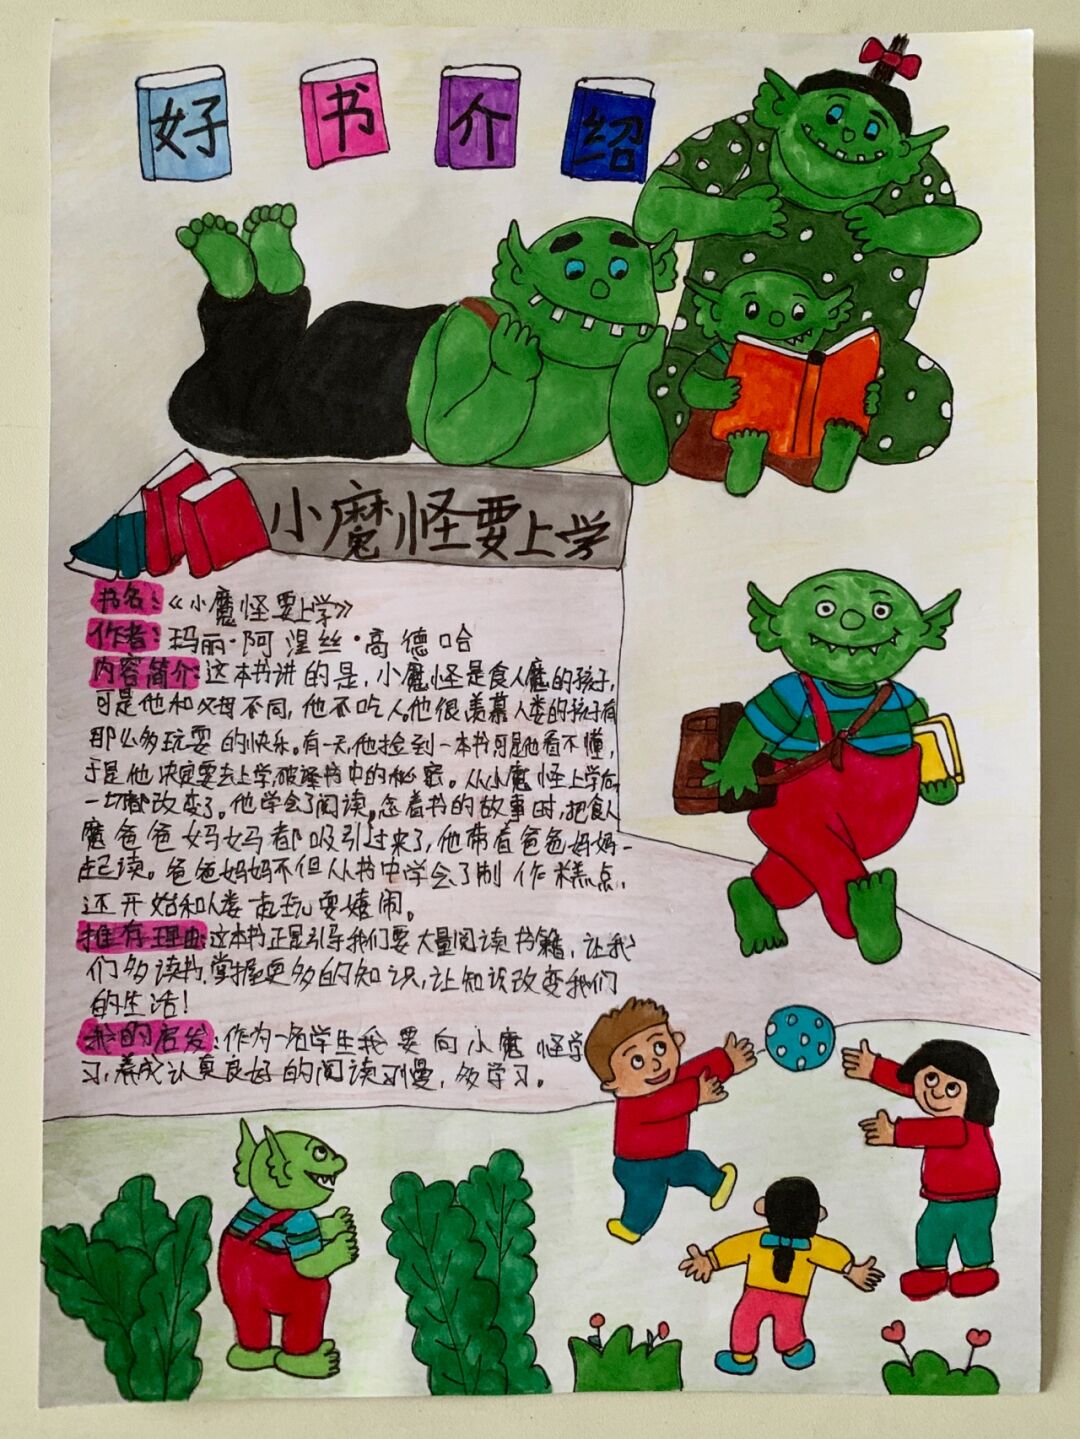 好书介绍
小魔怪要上学
书名:《小魔怪要上学》
作者:玛丽·阿涅丝·高德哈
内容简介:这本书讲的是,小魔怪是食人魔的孩子,
可是他和父母不同,他不吃人。他很羡慕人类的孩子有
那么多玩耍的快乐。有一天,他捡到一本书可是他看不懂,
于是他决定要去上学,破译书中的秘密。从小魔怪上学后,
一切都改变了。他学会了阅读。念着书的故事时,把食人
魔爸爸妈妈都吸引过来了,他带着爸爸妈妈一
起读。爸爸妈妈不但从书中学会了制作糕点,
还开始和人类一起玩耍嬉闹。
推荐理由:这本书正是引导我们要大量阅读书籍,让我
们多读书,掌握更多的知识,让知识改变我们
的生活!
我的启发:作为一名学生我要向小魔怪学
习,养成认真良好的阅读习惯,多学习。